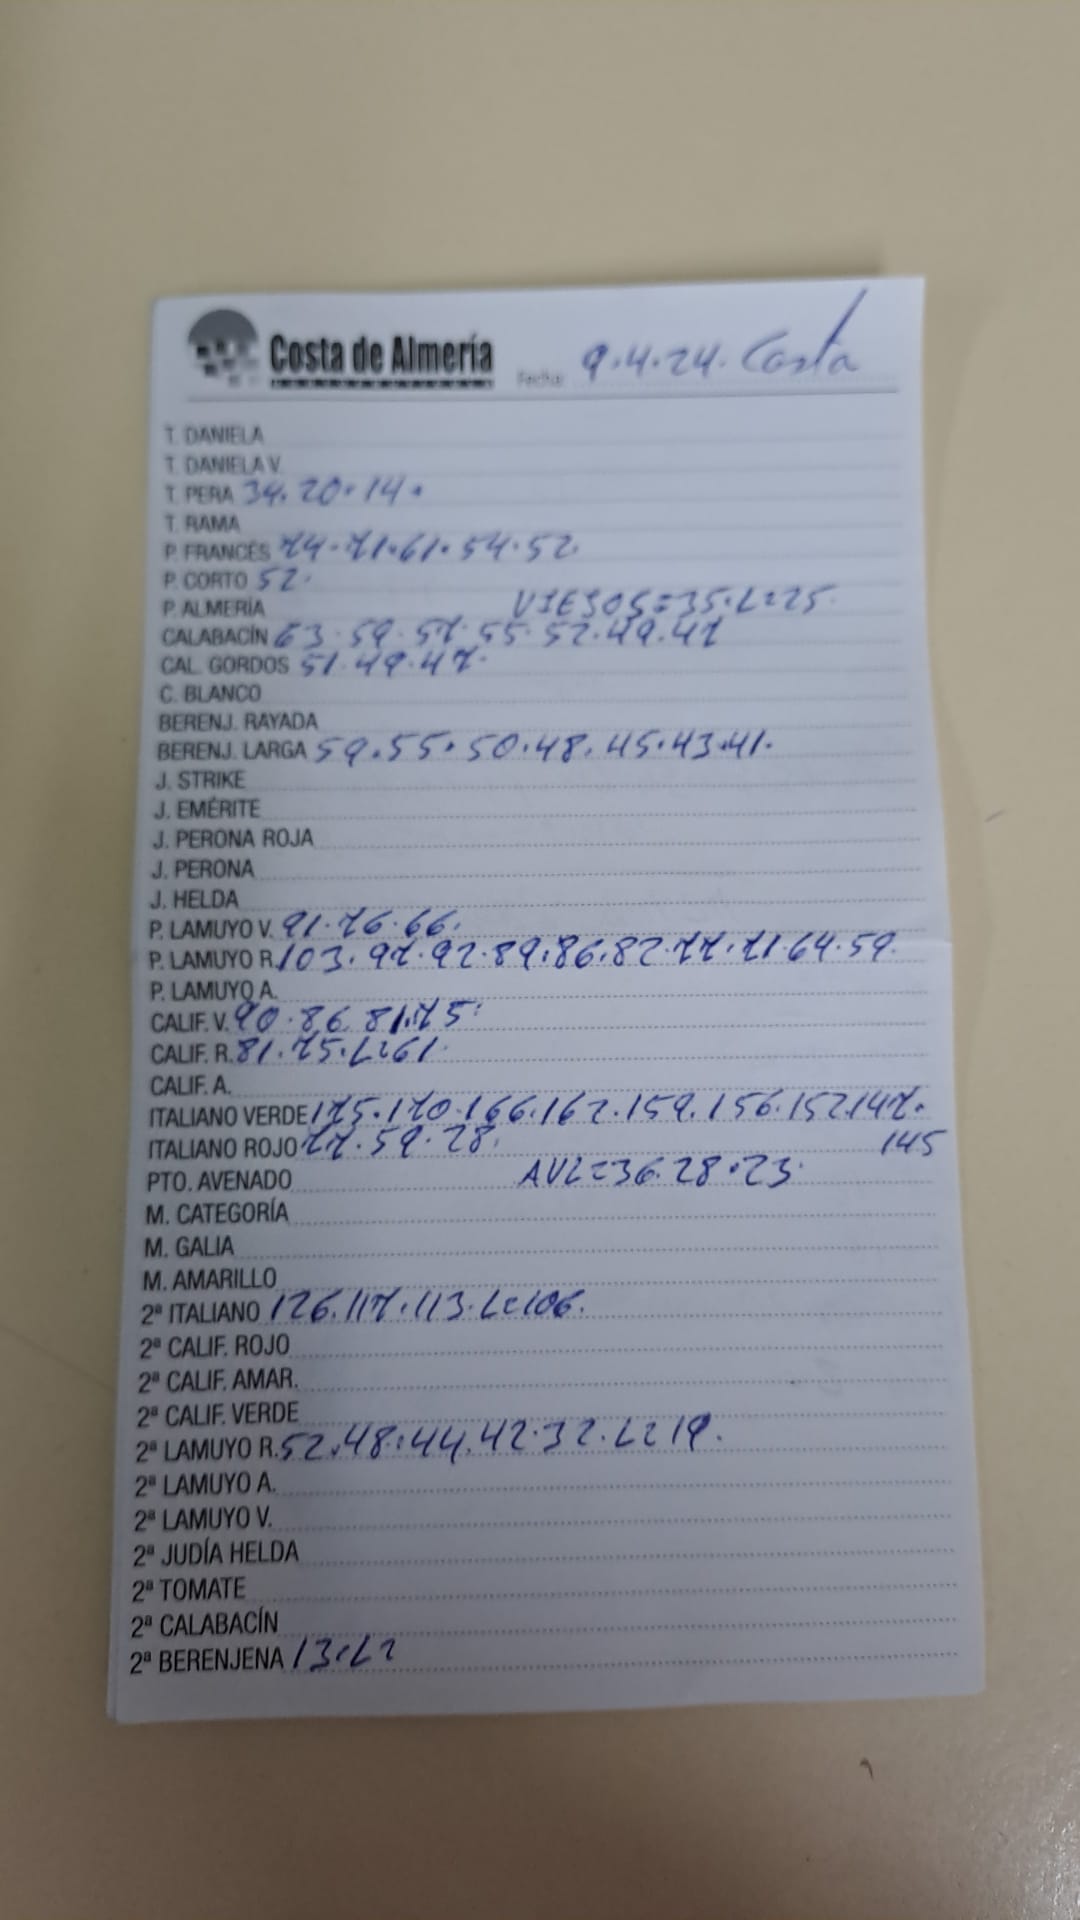 Costa de Almería
Fecha: 9.4.24. Costa
T. DANIELA
T. DANIELA V.
T. PERA 34.20.14.
T. RAMA
P. FRANCÉS 74.71.61.54.52.
P. CORTO 52.
P. ALMERÍA VIESOS=35.L=25.
CALABACÍN 63.59.57.55.52.49.47
CAL. GORDOS 51.49.47.
C. BLANCO
BERENJ. RAYADA
BERENJ. LARGA 59.55.50.48.45.43.41.
J. STRIKE
J. EMÉRITE
J. PERONA ROJA
J. PERONA
J. HELDA
P. LAMUYO V. 91.76.66.
P. LAMUYO R. 103.97.92.89.86.82.77.71.64.59.
P. LAMUYO A.
CALIF. V. 90.86.81.75.
CALIF. R. 81.75.L=61.
CALIF. A.
ITALIANO VERDE 175.170.166.162.159.156.152.147.
ITALIANO ROJO 77.59.28. 145
PTO. AVENADO AVL=36.28.23.
M. CATEGORÍA
M. GALIA
M. AMARILLO
2ª ITALIANO 126.117.113.L=106.
2ª CALIF. ROJO
2ª CALIF. AMAR.
2ª CALIF. VERDE
2ª LAMUYO R. 52.48.44.42.32.L=19.
2ª LAMUYO A.
2ª LAMUYO V.
2ª JUDÍA HELDA
2ª TOMATE
2ª CALABACÍN
2ª BERENJENA 13.L2